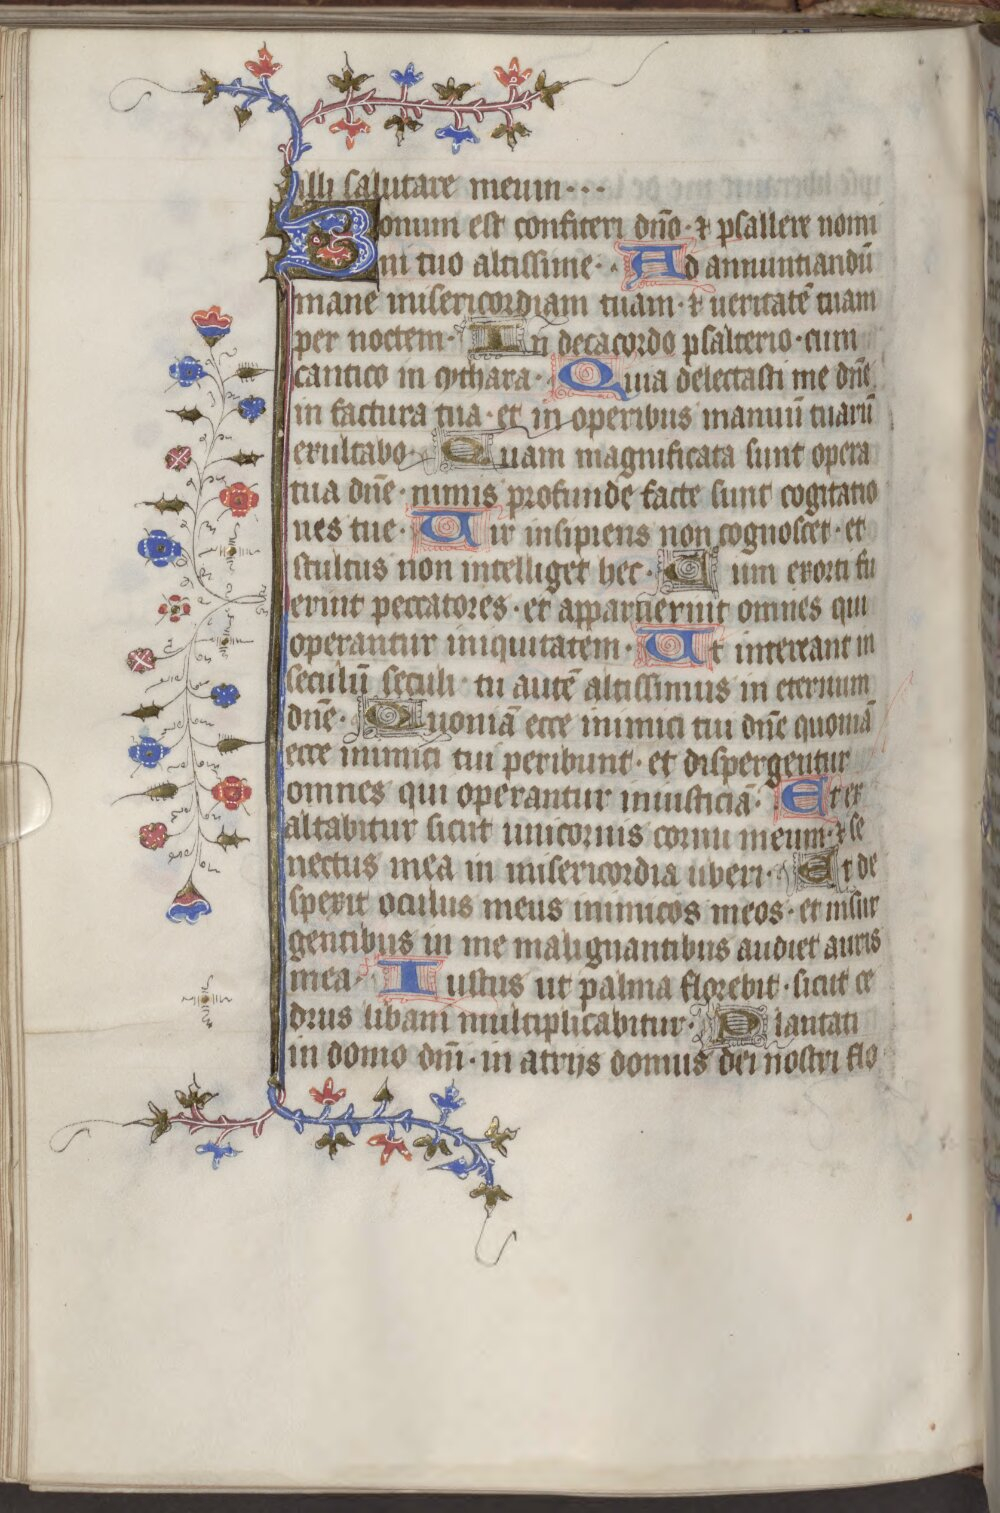 illi salutare meum
Bonum est confiteri dño · ⁊ psallere nomi
ni tuo altissime · Ad annuntiandū
mane misericordiam tuam · ⁊ ueritatē tuam
per noctem · In decacordo psalterio · cum
cantico in cythara · Quia delectasti me dñe
in factura tua · et in operibus manuū tuarū
exultabo · Quam magnificata sunt opera
tua dñe · nimis profunde facte sunt cogitatio
nes tue · Uir insipiens non cognoscet · et
stultus non intelliget hec · Cum exorti fu
erint peccatores · et apparuerint omnes qui
operantur iniquitatem · Ut intereant in
seculū seculi · tu autē altissimus in eternum
dñe · Quoniā ecce inimici tui dñe quoniā
ecce inimici tui peribunt · et dispergentur
omnes qui operantur iniusticiā · Et ex
altabitur sicut unicornis cornu meum · ⁊ se
nectus mea in misericordia uberi · Et de
spexit oculus meus inimicos meos · et insur
gentibus in me malignantibus audiet auris
mea · Iustus ut palma florebit · sicut ce
drus libani multiplicabitur · Plantati
in domo dñi · in atrijs domus dei nostri flo